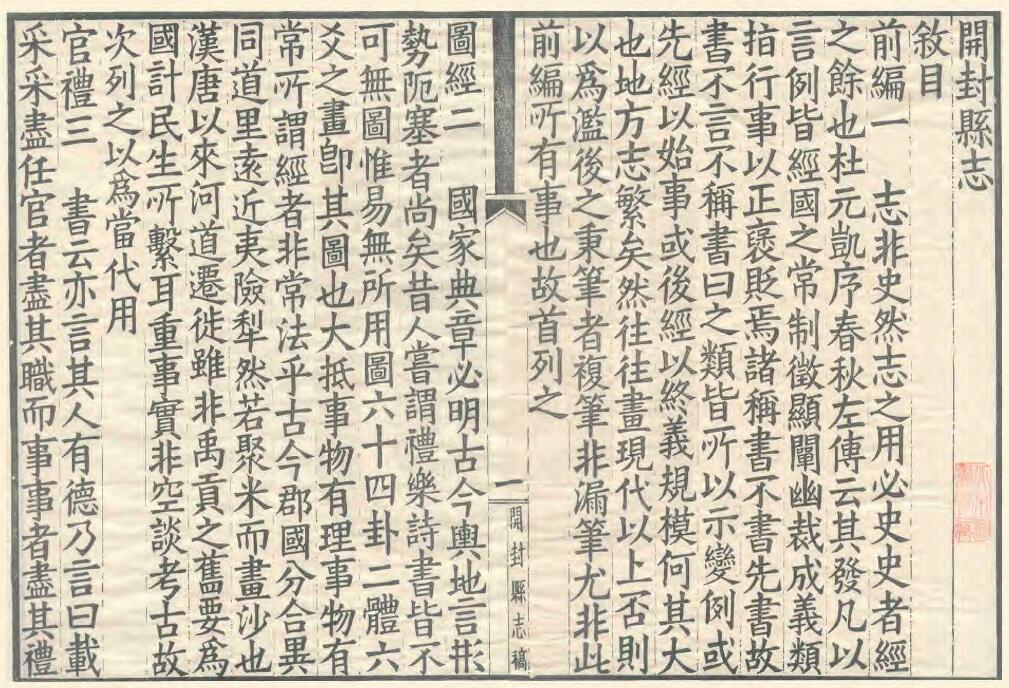 開封縣志
敘目
前編一　志非史然志之用必史史者經
之餘也杜元凱序春秋左傳云其發凡以
言例皆經國之常制徵顯闡幽裁成義類
指行事以正褒貶焉諸稱書不書先書故
書不言不稱書曰之類皆所以示變例或
先經以始事或後經以終義規模何其大
也地方志繁矣然往往畫現代以上否則
以爲濫後之秉筆者複筆非漏筆尤非此
前編所有事也故首列之
一
開封縣志稿
圖經二　國家典章必明古今輿地言形
勢阨塞者尚矣昔人嘗謂禮樂詩書皆不
可無圖惟易無所用圖六十四卦二體六
爻之畫卽其圖也大抵事物有理事物有
常所謂經者非常法乎古今郡國分合異
同道里遠近夷險犁然若聚米而畫沙也
漢唐以來河道遷徙雖非禹貢之舊要爲
國計民生所繫耳重事實非空談考古故
次列之以爲當代用
官禮三　書云亦言其人有德乃言曰載
采采盡任官者盡其職而事事者盡其禮